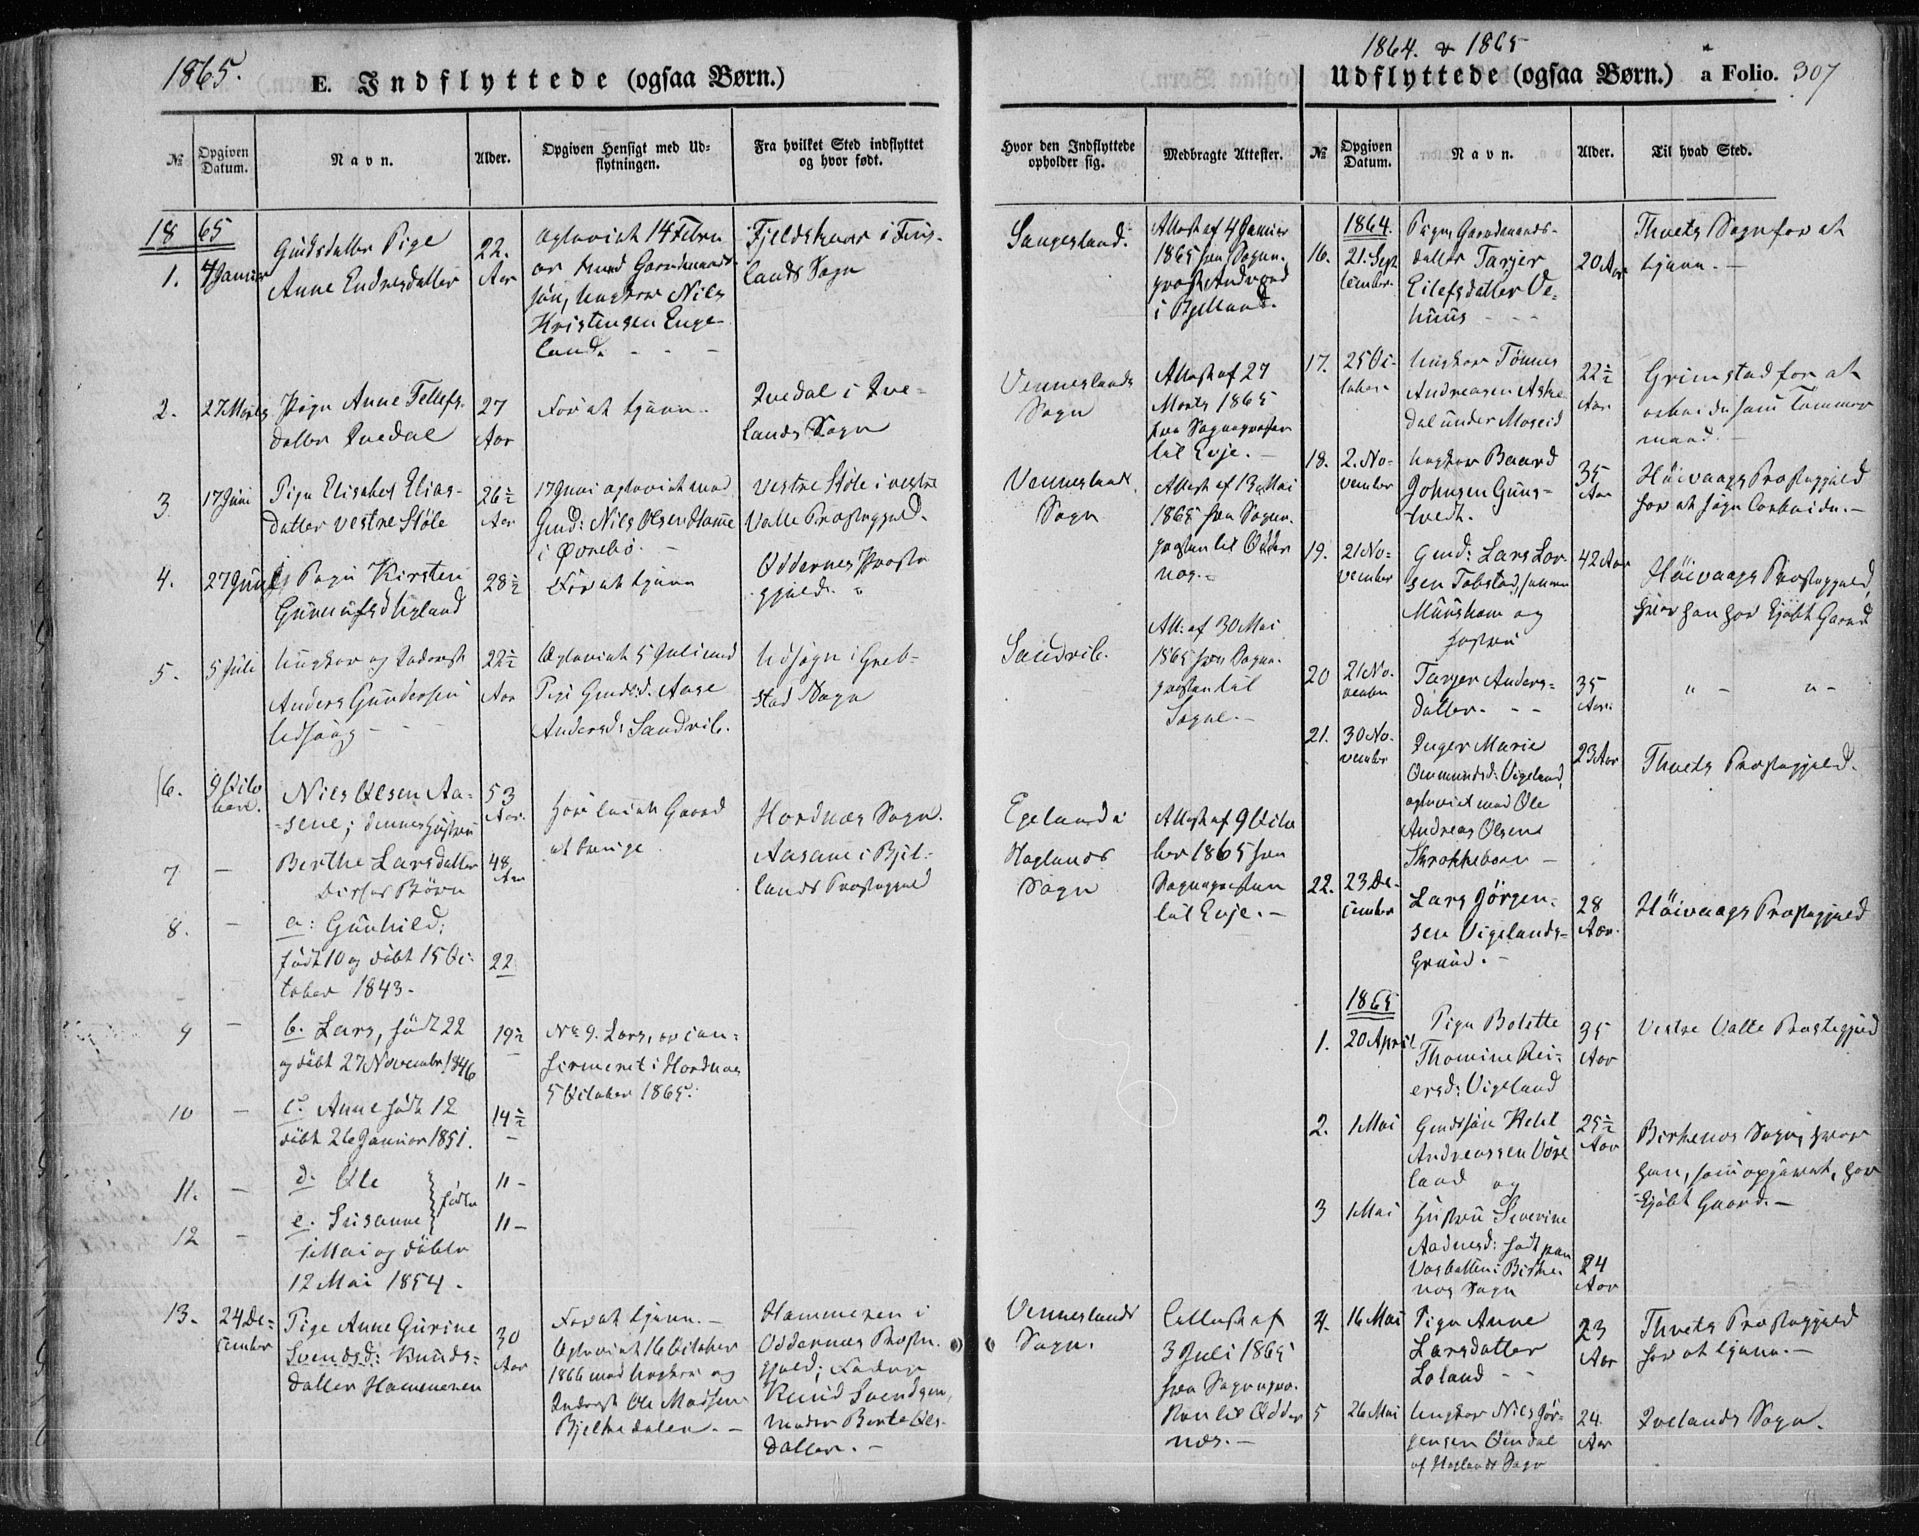 1865.
E. Indflyttede (ogsaa Børn.)
№
Opgiven Datum.
Navn.
Alder.
Opgiven Hensigt med Ud-
flytningen.
Fra hvilket Sted indflyttet
og hvor født.
Hvor den Indflyttede
opholder sig.
Medbragte Attester.
1865
1.
4 Januar
Pige
Anne Endresdatter
22.
Aar
14 Febru
ar med Gaardmands-
søn, Ungkar Nils
Kristensen Enge-
land.
i Fins-
lands Sogn
Attest af 4 Januar
1865 fra Sogne-
i Bjelland.
2.
27 Marts
Pige Anne Tellefs-
datter Ivedal
27
Aar
For at tjene.
Ivedal i Ive-
lands Sogn
Venneslands
Sogn
Attest af 27
Marts 1865
fra Sognepresten
til Evje.
3
17 Juni
Pige Elisabet Elias-
datter vestre Støle
26½
Aar
17 Juni med
Nils Olsen Homme
i Øvrebø.
Vestre Støle i vestre
Valle Prestegjeld.
Vennesland
Sogn
Attest af 13 Mai
1865 fra Sogne-
presten til Odder
nes.
4.
27 Juni
Pige Kirsten
28½
For at tjene
Oddernes Preste
gjeld.
5.
5 Juli
Ungkar og Inderst
Anders Gundersen
22½
Aar
5 Juli med
Pige Aase
Andersd: Sandrib.
i Greb-
stad Sogn
Sandrib.
Att. af 30 Mai
1865 fra Sogne-
presten til
Sogne.
6.
9 Octo
ber.
Nils Olsen Aa-
sene; dennes Hustru
53
Aar.
Gaard
at bruge.
Hordnæs Sogn.
Egeland i
Hæglands
Sogn
Attest af 9 Octo
ber 1865 fra
Sognepresten
til Evje.
7
Berthe Larsdatter
Disses Børn
48
Aar
Aasane i Bjel-
lands Prestegjeld
8.
a: Gunhild;
født 10 og døbt 15 Oc-
tober 1843.
22
9
b. Lars, født 22
og døbt 27 November 1846
19½
No 9. Lars, er con-
firmeret i Hordnes
5 October 1865.
10
c. Anne født 12
døbt 26 Januar 1851.
14½
11.
d. Ole
11
12
e. Susanne
født
1 Mai og døbte
12 Mai 1854.
11
13.
24 De-
cember
Pige Anne Gurine
Svendsd: Knuds-
datter Hammeren
30
Aar
For at tjene.
16 October
1866 med Ungkar og
Inderst Ole Madsen
Bjelkedalen.
Hammeren i
Oddernes Preste-
gjeld; Fader
Knud Svendsen,
moder Berte Ols-
datter.
Venneslands
Sogn.
Attest af
3 Juli 1865
fra Sognepre-
sten til Odder
næs.
1864. & 1865
Udflyttede (ogsaa Børn.)
a Folio. 307
№
Opgiven
Datum.
Navn.
Alder.
Til hvad Sted.
1864.
16.
21. Sept
ember
Pigen Gaardmands-
datter Tarjer
Eilefsdatter Ve-
huus
20 Aar
Thvets Sogn for at
tjene.
17.
25 Oc-
tober
Ungkar Tønnes
Andreasen Aske
dal under Moseid
22½
Aar
Grimstad for at
arbeide som Tømmer
mand.
18.
2. No-
vember
Ungkar Baard
Johnsen Guns-
tvedt.
35
Aar
Höivaags Prestegjeld
for at søge Arbeide.
19.
21 No-
vember
Gmd: Lars Lar-
sen Tobstad,
og
Hustru
42 Aar
Höivaags Prestegjeld,
hvor han har kjøbt Gaard
20
21 No-
vember
Tarjer Anders-
datter.
35
Aar.
" — " —
21.
30 No-
vember
Inger Marie
Ommundsd: Vigeland,
med Ole
Andreas Olsen
23 Aar
Thvets Prestegjeld.
22.
23 De-
cember
Lars Jörgen-
sen Vigelands-
Grund.
28
Aar.
Höivaags Prestegjeld
1865
1.
20 April
Pige Bolette
Thomine Rei-
ersd: Vigeland
35
Aar
Vestre Valle Prestegjeld
2.
1 Mai
Andreassen
land og
25½
Aar
Birkenes Sogn, hvor
han, som har
kjöbt Gaard.
3
1 Mai
Hustru Severine
Aadnesd: født paa
i Birke-
nes Sogn
24
Aar
4.
16 Mai
Pige Anne
Larsdatter
Loland
23
Aar
Thvets Prestegjeld
for at tjene.
5
26 Mai
Ungkar Nils Jør-
gensen
af Heglands Sogn
24
Aar
Ivelands Sogn.